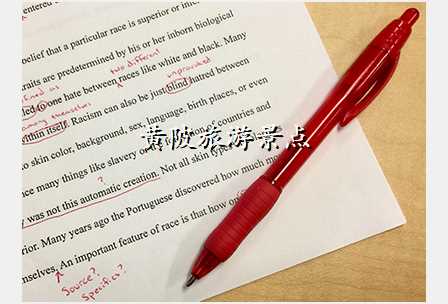 entered
belief that a particular race is superior or
traits are predetermined by his or her inborn biological
two different
unprovoked
to one hate between races like white and black. Many
among themselves
within itself. Racism can also be just blind hatred between
to skin color, background, sex, language, birth places, or even
黄陂旅游景点
many things like slavery of countries and
?
was not this automatic creation. Not all skin
Many years ago the Portuguese discovered how much
An important feature of race is that how
Source?
Specifics?